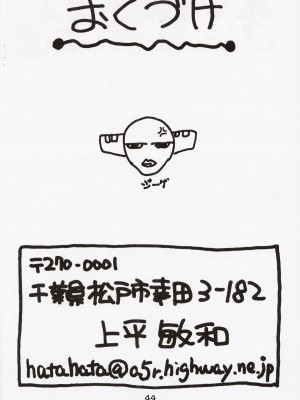 おくづけ
ジーグ
〒270-0001
千葉県松戸市幸田3-182
上平敏和
hatahata@a5r.highway.ne.jp
44